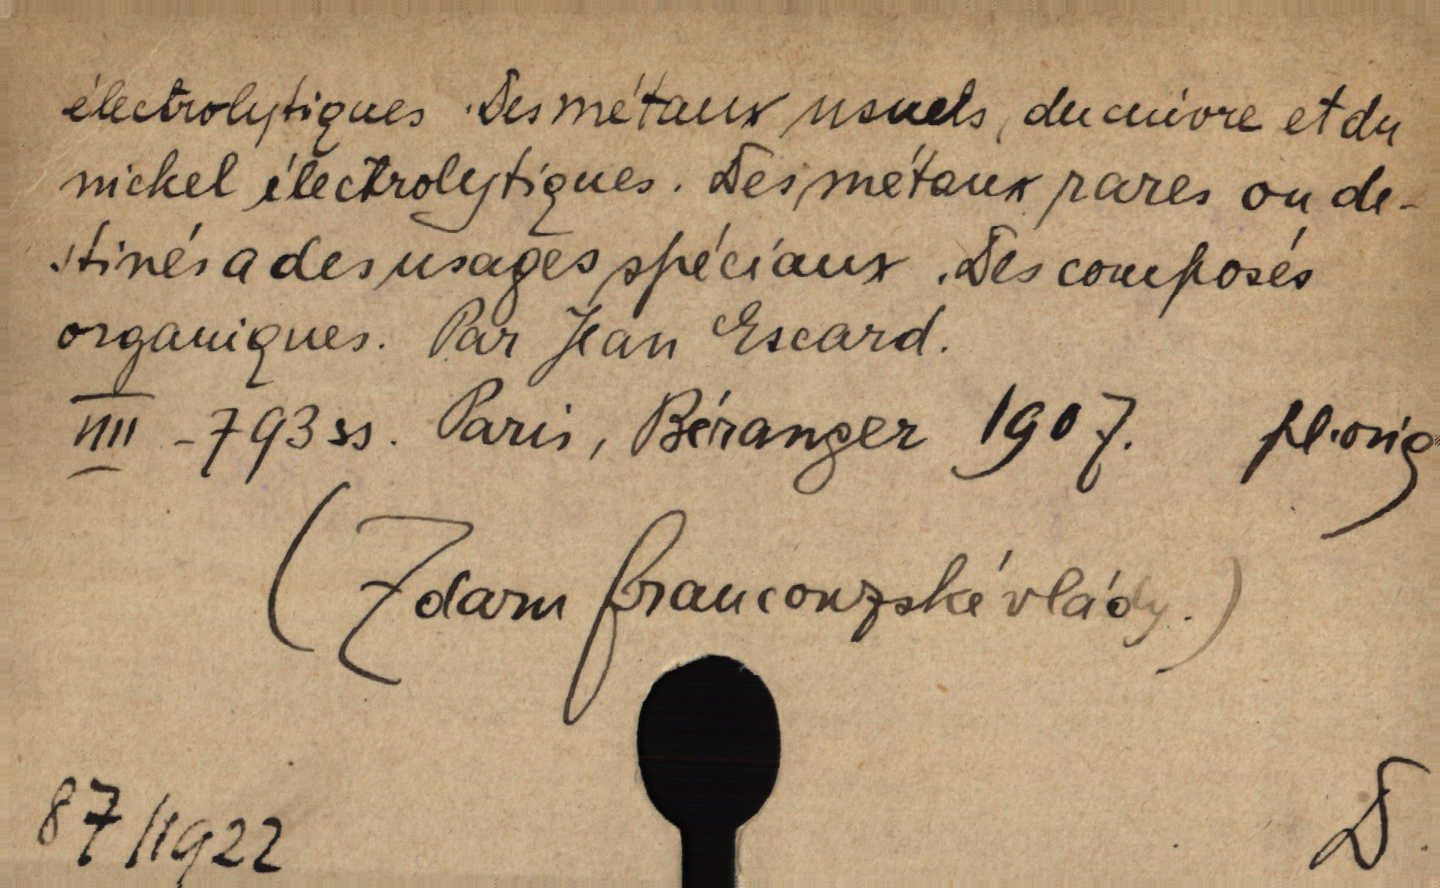 électrolytiques. Des métaux usuels, du cuivre et du
nickel électrolytiques. Des métaux rares ou de-
stinés a des usages spéciaux. Des composés
organiques. Par Jean Escard.
VIII - 793 ss. Paris, Béranger 1907. pl. orig
(Zdarm francouzské vlády.)
87/1922 D.